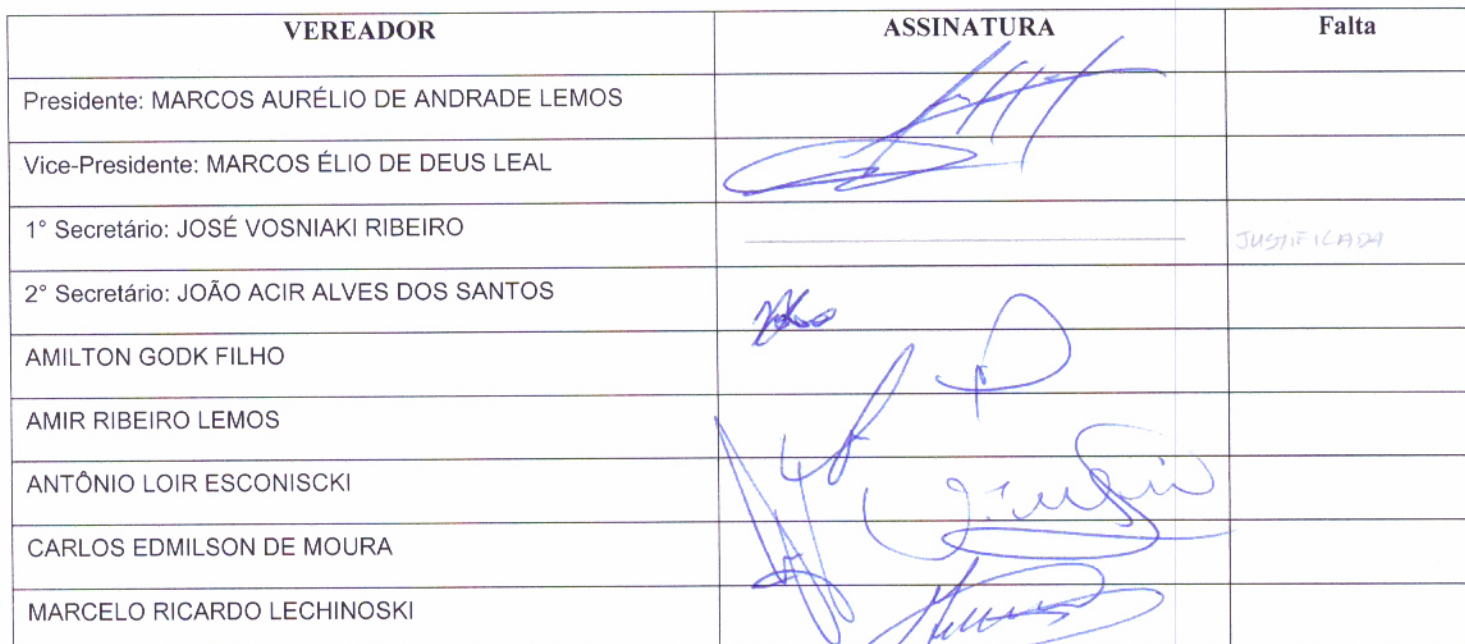 VEREADOR ASSINATURA Falta
Presidente: MARCOS AURÉLIO DE ANDRADE LEMOS
Vice-Presidente: MARCOS ÉLIO DE DEUS LEAL
1° Secretário: JOSÉ VOSNIAKI RIBEIRO JUSTIFICADA
2° Secretário: JOÃO ACIR ALVES DOS SANTOS
AMILTON GODK FILHO
AMIR RIBEIRO LEMOS
ANTÔNIO LOIR ESCONISCKI
CARLOS EDMILSON DE MOURA
MARCELO RICARDO LECHINOSKI